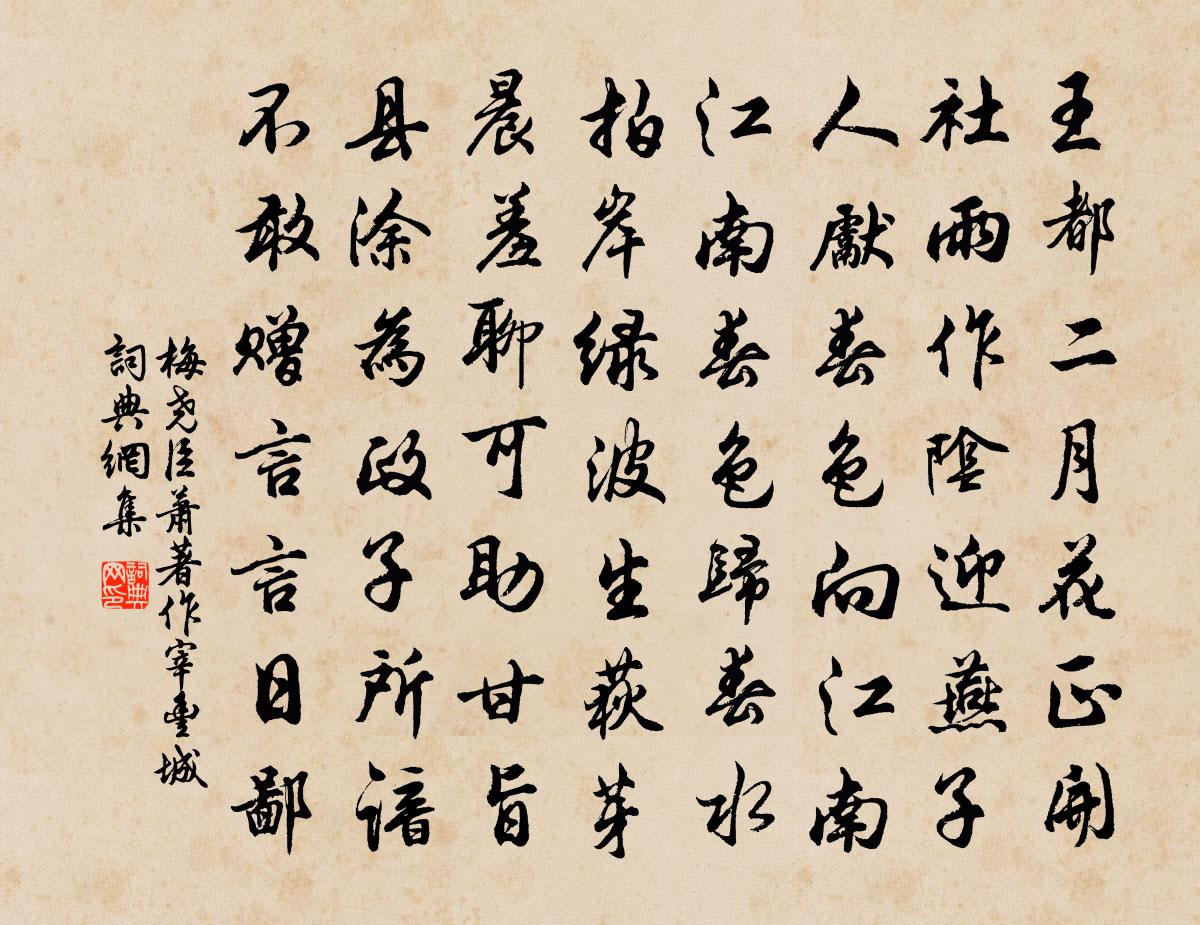 王都二月花正開
社雨作陰迎燕子
人獻春色向江南
江南春色歸春水
拍岸緑波生荻芽
晨羞聊可助甘旨
县涂為政子所諳
不敢贈言言日鄙
梅尧臣蕭著作宰豐城
詞典網集
詞典网印